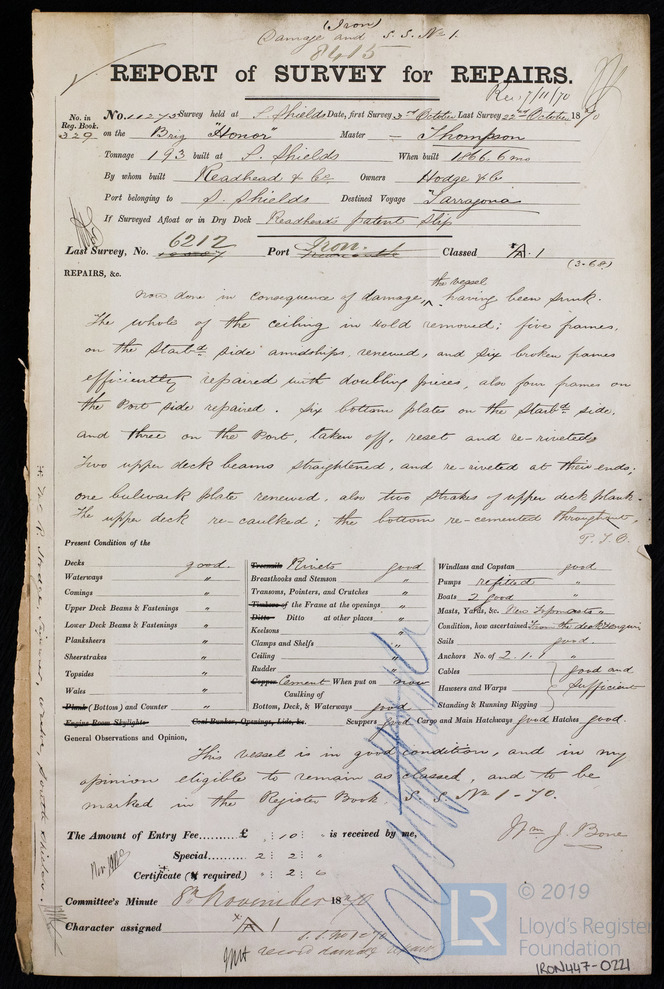 (Iron)
Damage and S. S. No 1.
8415
REPORT of SURVEY for REPAIRS.
Rec. 7/11/70
No. in Reg. Book.
329
No. 11273 Survey held at S. Shields Date, first Survey 3rd October Last Survey 22nd October 1870
on the Brig "Honor" Master — Thompson
Tonnage 193 built at S. Shields When built 1866. 6 mo
By whom built Readhead & Co Owners Hodge & Co
Port belonging to S. Shields Destined Voyage Tarragona
If Surveyed Afloat or in Dry Dock Readheads patent Slip
Last Survey, No. 6212 Port Iron. Classed A. 1
(3-68)
REPAIRS, &c.
Now done in consequence of damage, the vessel having been sunk.
The whole of the ceiling in hold removed; five frames,
on the Starbd side amidships, renewed, and six broken frames
efficiently repaired with doubling pieces, also four frames on
the Port side repaired. Six bottom plates on the Starbd side,
and three on the Port, taken off, reset and re-riveted
Two upper deck beams straightened, and re-riveted at their ends;
one bulwark plate renewed, also two strakes of upper deck plank.
The upper deck re-caulked; the bottom re-cemented throughout,
P.T.O.
Present Condition of the
Decks good.
Waterways "
Comings "
Upper Deck Beams & Fastenings "
Lower Deck Beams & Fastenings "
Planksheers "
Sheerstrakes "
Topsides "
Wales "
Plank (Bottom) and Counter "
Engine Room Skylights
Treenails Rivets good
Breasthooks and Stemson "
Transoms, Pointers, and Crutches "
Timbers of the Frame at the openings "
Ditto Ditto at other places "
Keelsons "
Clamps and Shelfs "
Ceiling "
Rudder "
Copper Cement When put on now
Caulking of
Bottom, Deck, & Waterways good
Coal Bunker, Openings, Lids, &c. Scuppers good
Windlass and Capstan good
Pumps refitted "
Boats 2 good "
Masts, Yards, &c. New Topmasts "
Condition, how ascertained From the deck & enquiry
Sails good.
Anchors No. of 2. 1. 1 "
Cables good and
Hawsers and Warps sufficient
Standing & Running Rigging
Cargo and Main Hatchways good Hatches good.
General Observations and Opinion,
This vessel is in good condition, and in my
opinion eligible to remain as classed, and to be
marked in the Register Book S S No 1 - 70.
The Amount of Entry Fee......... £ " : 10 : " is received by me,
Wm J. Bone
Special ...... 2 : 2 : "
Certificate (if required) " : 2 : 6
Committee's Minute 8th November 1870
Character assigned A 1
S.S. No 1 - 70
record damage repair
© 2019
LR
Lloyd's Register
Foundation
IRON447-0221